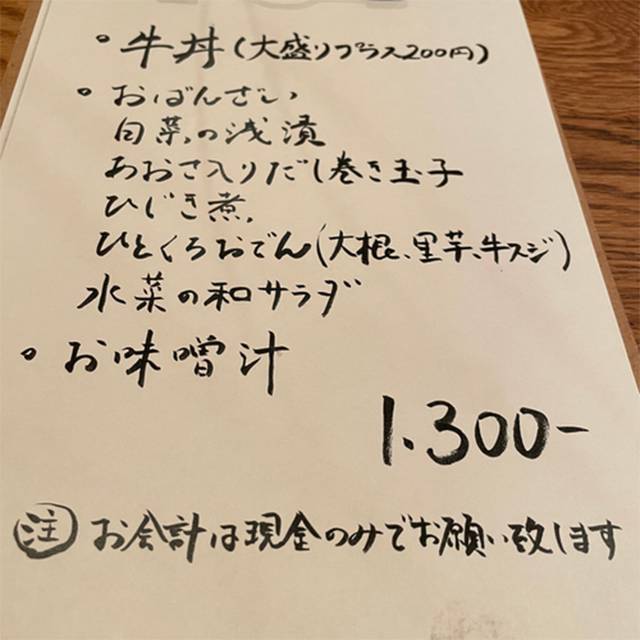 ・牛丼(大盛りプラス200円)
・おばんざい
白菜の浅漬
あおさ入りだし巻き玉子
ひじき煮
ひとくちおでん(大根、里芋、牛スジ)
水菜の和サラダ
・お味噌汁
1.300-
注 お会計は現金のみでお願い致します